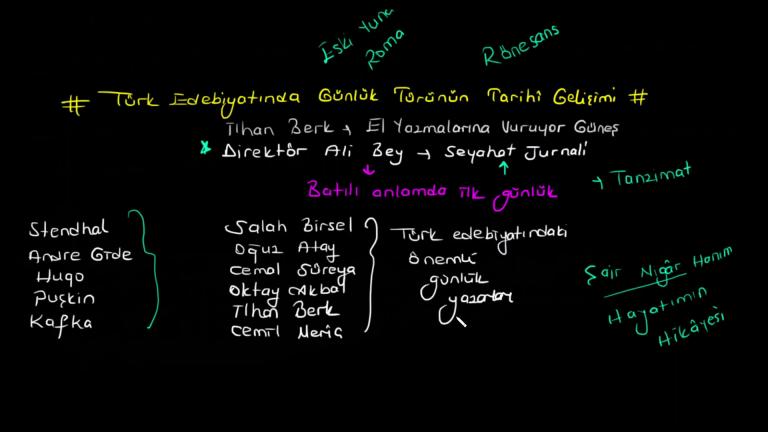 Eski Yuna
Roma
Rönesans
# Türk Edebiyatında Günlük Türünün Tarihî Gelişimi #
İlhan Berk → El Yazmalarına Vuruyor Güneş
* Direktör Ali Bey → Seyahat Jurnali
Batılı anlamda ilk günlük
→ Tanzimat
Stendhal
Andre Gide
Hugo
Puşkin
Kafka
Salah Birsel
Oğuz Atay
Cemal Süreya
Oktay Akbal
İlhan Berk
Cemil Meriç
Türk edebiyatındaki
önemli
günlük
yazarları
Şair Nigâr Hanım
Hayatımın
Hikâyesi